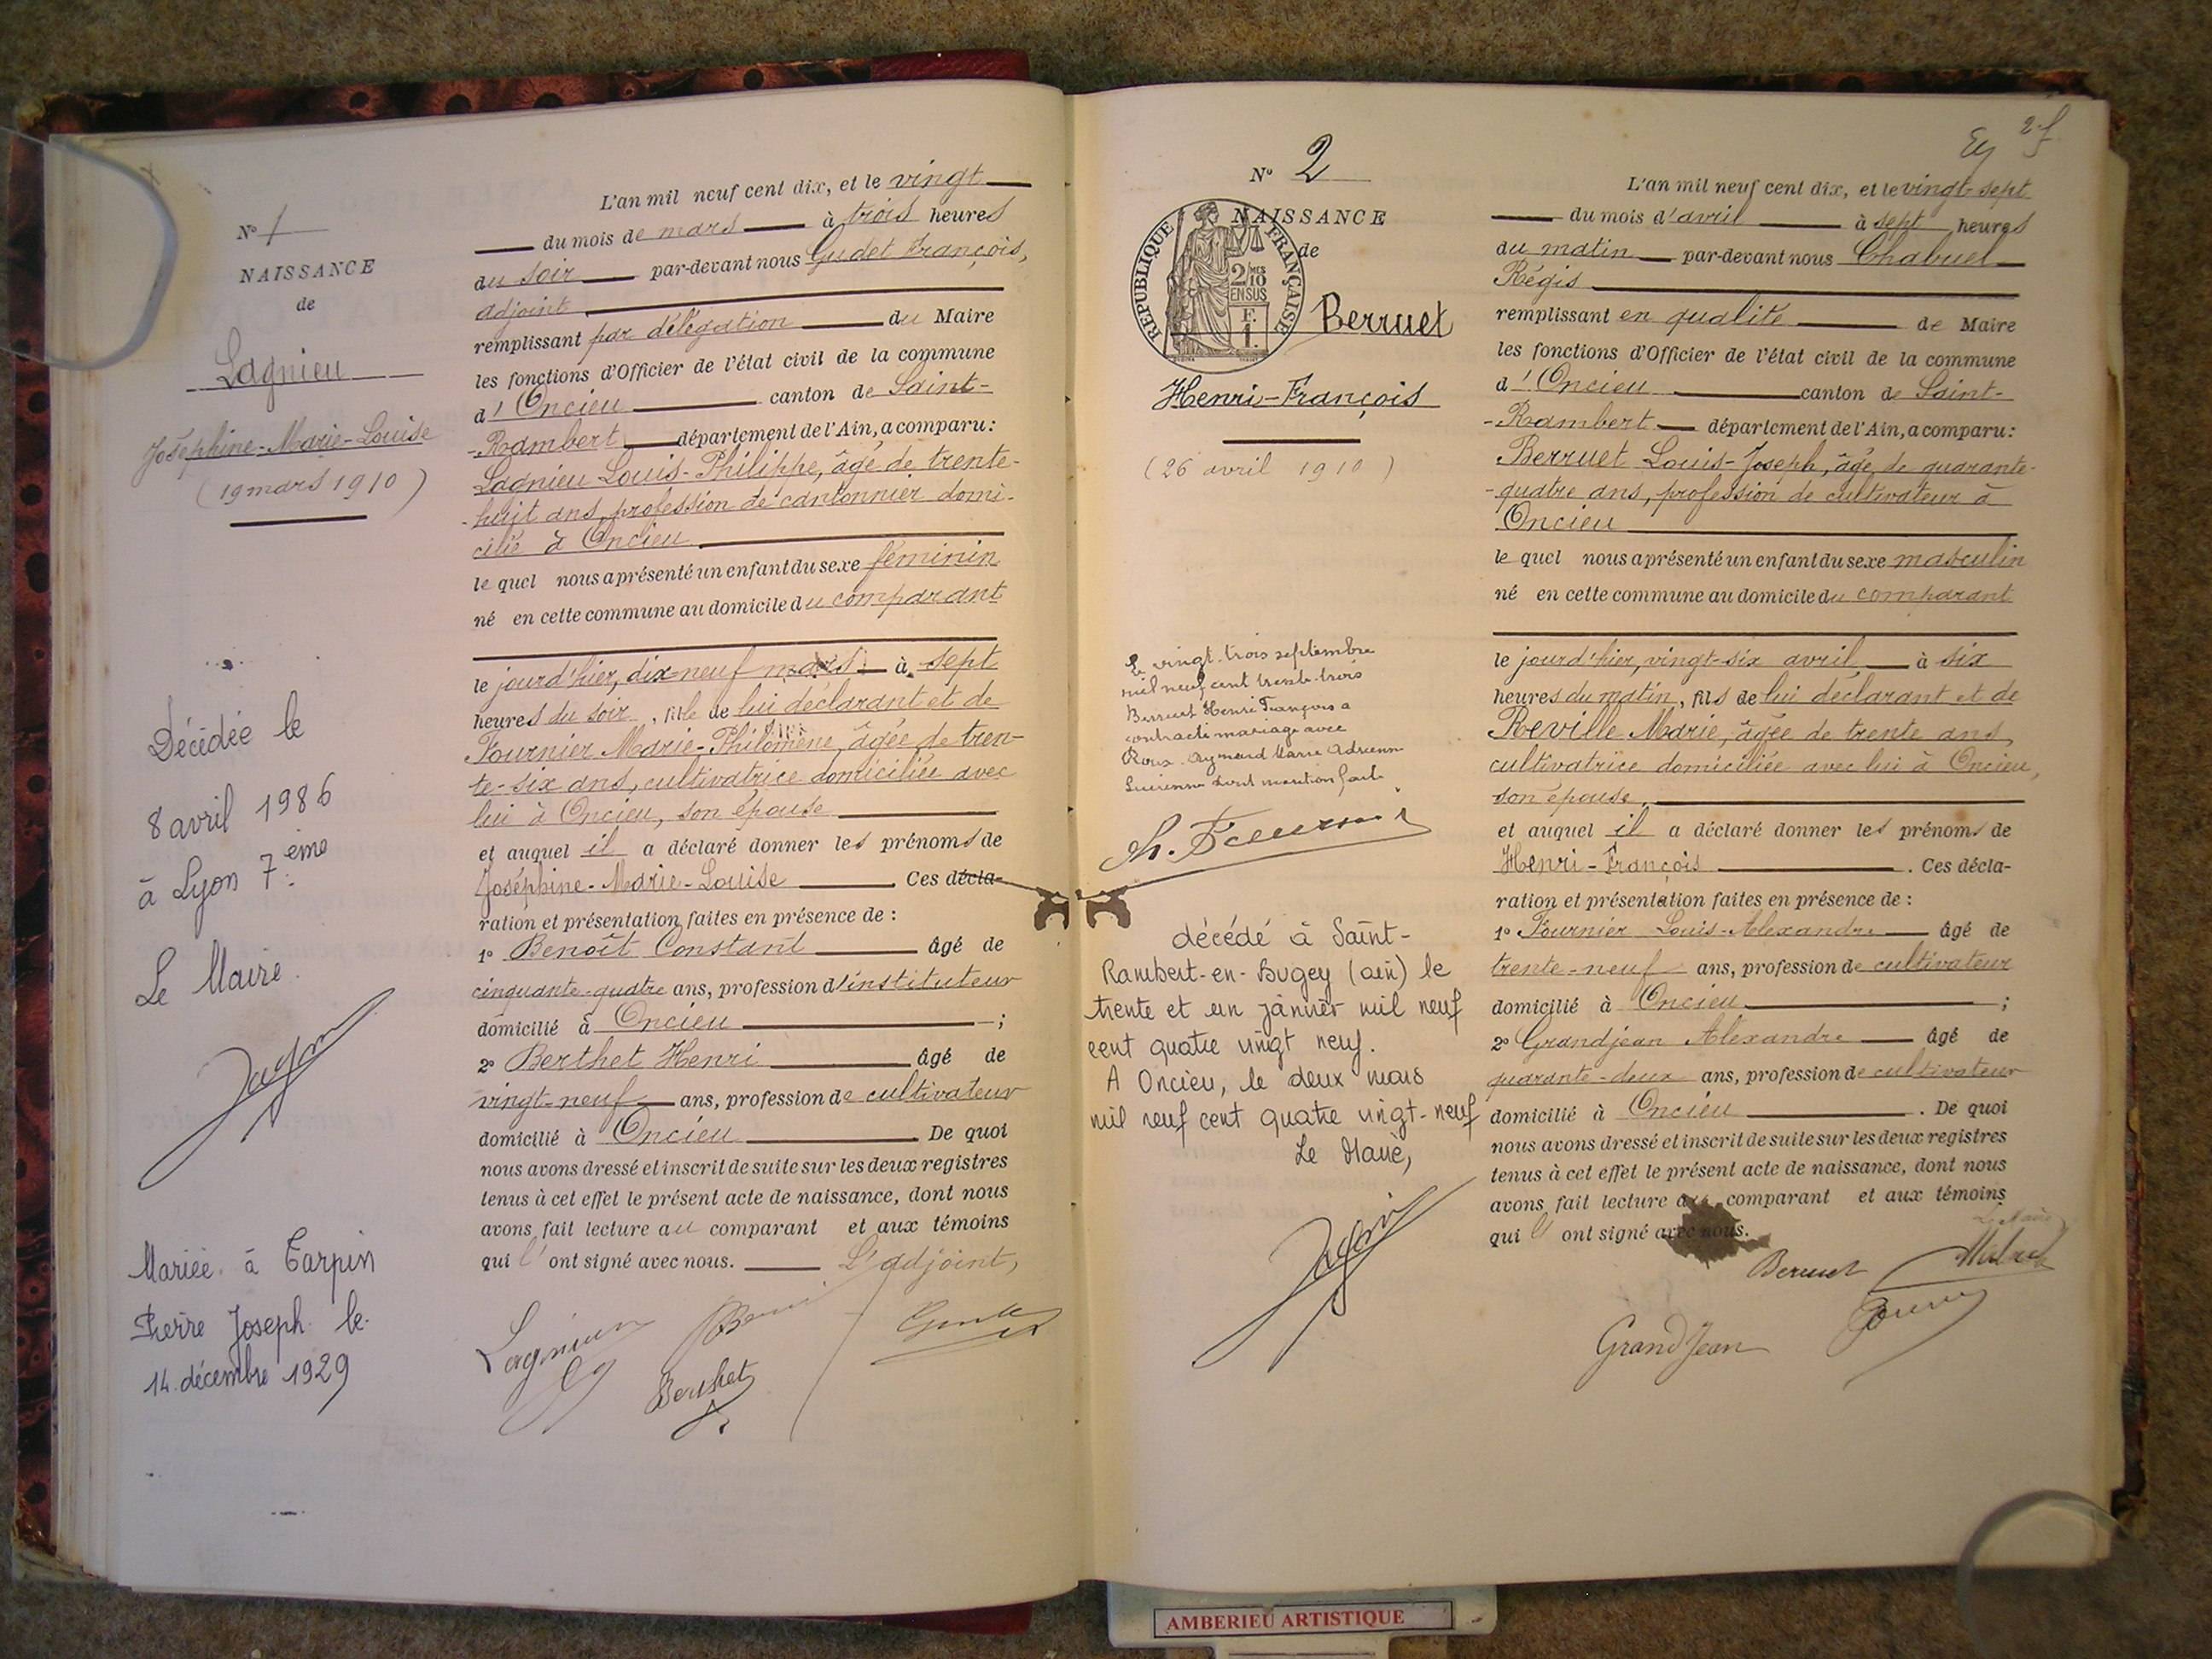 N° 1
NAISSANCE
de
Lagnieu
Joséphine-Marie-Louise
(19 mars 1910)
Décédée le
8 avril 1986
à Lyon 7ème
Le Maire
Mariée à Tarpin
Pierre Joseph le
14 décembre 1929
L'an mil neuf cent dix, et le vingt
du mois de mars à trois heures
du soir par-devant nous Gudet François,
adjoint
remplissant par délégation du Maire
les fonctions d'Officier de l'état civil de la commune
d'Oncieu canton de Saint-
-Rambert département de l'Ain, a comparu:
Lagnieu Louis-Philippe, âgé de trente-
-huit ans, profession de cantonnier domi-
cilié à Oncieu
le quel nous a présenté un enfant du sexe féminin
né en cette commune au domicile du comparant
le jourd'hier, dix-neuf mars à sept
heures du soir, fille de lui déclarant et de
Fournier Marie-Philomène, âgée de tren-
te-six ans, cultivatrice domiciliée avec
lui à Oncieu, son épouse
et auquel il a déclaré donner les prénoms de
Joséphine-Marie-Louise Ces décla-
ration et présentation faites en présence de :
1° Benoît Constant âgé de
cinquante-quatre ans, profession d'instituteur
domicilié à Oncieu ;
2° Berthet Henri âgé de
vingt-neuf ans, profession de cultivateur
domicilié à Oncieu . De quoi
nous avons dressé et inscrit de suite sur les deux registres
tenus à cet effet le présent acte de naissance, dont nous
avons fait lecture au comparant et aux témoins
qui l'ont signé avec nous. L'adjoint,
Lagnieu
Berthet
2
N° 2
NAISSANCE
de
RÉPUBLIQUE FRANÇAISE
2/MES
10
EN SUS
F.
1.
Berruet
Henri-François
(26 avril 1910)
Le vingt-trois septembre
mil neuf cent trente-trois
Berruet Henri François a
contracté mariage avec
Roux-Aymard Marie Adrienne
Lucienne dont mention faite
décédé à Saint-
Rambert-en-Bugey (ain) le
trente et un janvier mil neuf
cent quatre vingt neuf.
A Oncieu, le deux mars
mil neuf cent quatre vingt-neuf
Le Maire,
L'an mil neuf cent dix, et le vingt-sept
du mois d'avril à sept heures
du matin par-devant nous Chabuel
Régis
remplissant en qualité de Maire
les fonctions d'Officier de l'état civil de la commune
d'Oncieu canton de Saint-
-Rambert département de l'Ain, a comparu:
Berruet Louis-Joseph, âgé de quarante-
-quatre ans, profession de cultivateur à
Oncieu
le quel nous a présenté un enfant du sexe masculin
né en cette commune au domicile du comparant
le jourd'hier, vingt-six avril à six
heures du matin, fils de lui déclarant et de
Reville Marie, âgée de trente ans,
cultivatrice domiciliée avec lui à Oncieu,
son épouse,
et auquel il a déclaré donner les prénoms de
Henri-François . Ces décla-
ration et présentation faites en présence de :
1° Fournier Louis-Alexandre âgé de
trente-neuf ans, profession de cultivateur
domicilié à Oncieu ;
2° Grandjean Alexandre âgé de
quarante-deux ans, profession de cultivateur
domicilié à Oncieu . De quoi
nous avons dressé et inscrit de suite sur les deux registres
tenus à cet effet le présent acte de naissance, dont nous
avons fait lecture au comparant et aux témoins
qui l'ont signé avec nous.
Le Maire
Berruet
GrandJean
AMBERIEU ARTISTIQUE